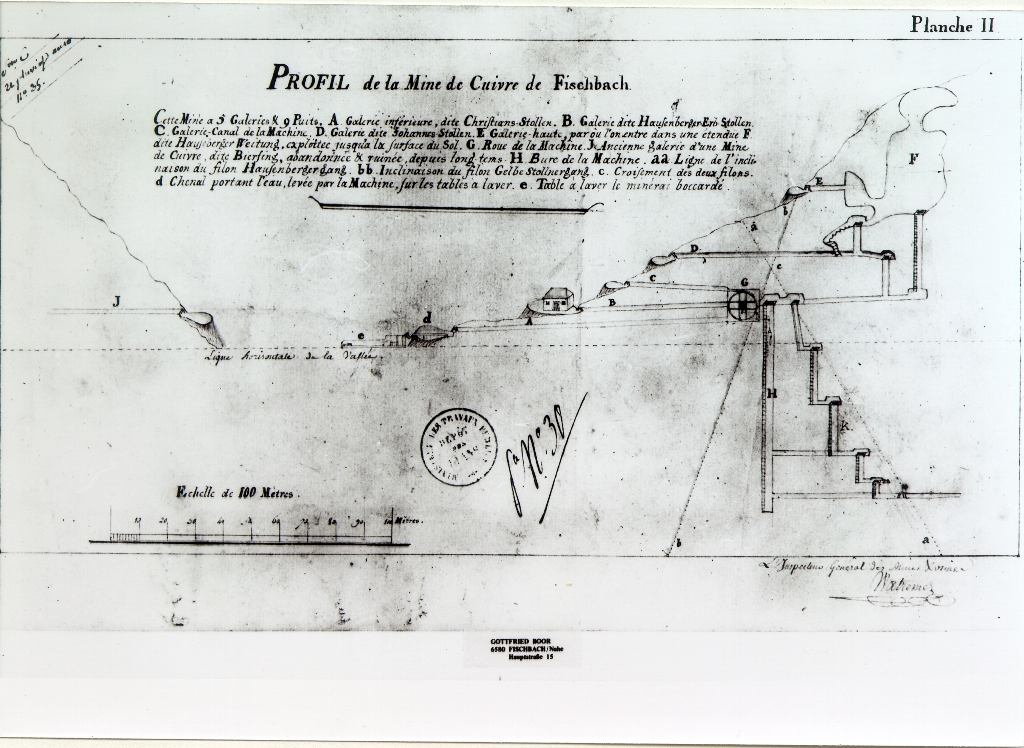 Planche II
22 pluviose
N° 35.
PROFIL de la Mine de Cuivre de Fischbach.
Cette Mine a 5 Galeries & 9 Puits. A. Galerie inférieure, dite Christians-Stollen. B. Galerie dite Hausenberger Erb Stollen.
C. Galerie-Canal de la Machine. D. Galerie dite Johannes-Stollen. E Galerie-haute, par où l'on entre dans une étendue F
dite Hausenberger Weitung, exploitée jusqu'à la surface du Sol. G. Roue de la Machine. J. Ancienne galerie d'une Mine
de Cuivre, dite Bierfing, abandonnée & ruinée, depuis long-tems. H Bure de la Machine. aa Ligne de l'incli-
naison du filon Hausenbergergang. bb. Inclinaison du filon Gelbe Stollnergang. c. Croisement des deux filons.
d Chenal portant l'eau, levée par la Machine, sur les tables a laver. e. Table a laver le minerai boccardé.
F
E
b
a
D
c
C
G
B
J
A
d
e
Ligne horisontale de la Vallée.
H
K
MINIST. DES TRAVAUX PUBLICS
DÉPÔT
DES
PLANS
N° 30
Echelle de 100 Mètres.
10 20 30 40 50 60 70 80 90 100 Mètres.
b
a
L'Inspecteur Général des Mines
GOTTFRIED BOOR
6580 FISCHBACH/Nahe
Hauptstraße 15